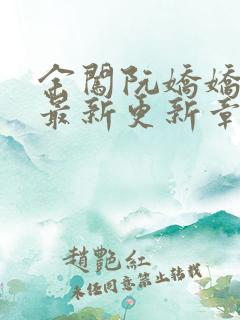 金闕阮嬌嬌
最新更新章
趙艷紅
未任同意禁止转载